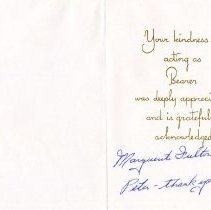 Your kindness
acting as
Bearer
was deeply appreci
and is grateful
acknowledged
Marguerit Fulton
Peter - thank